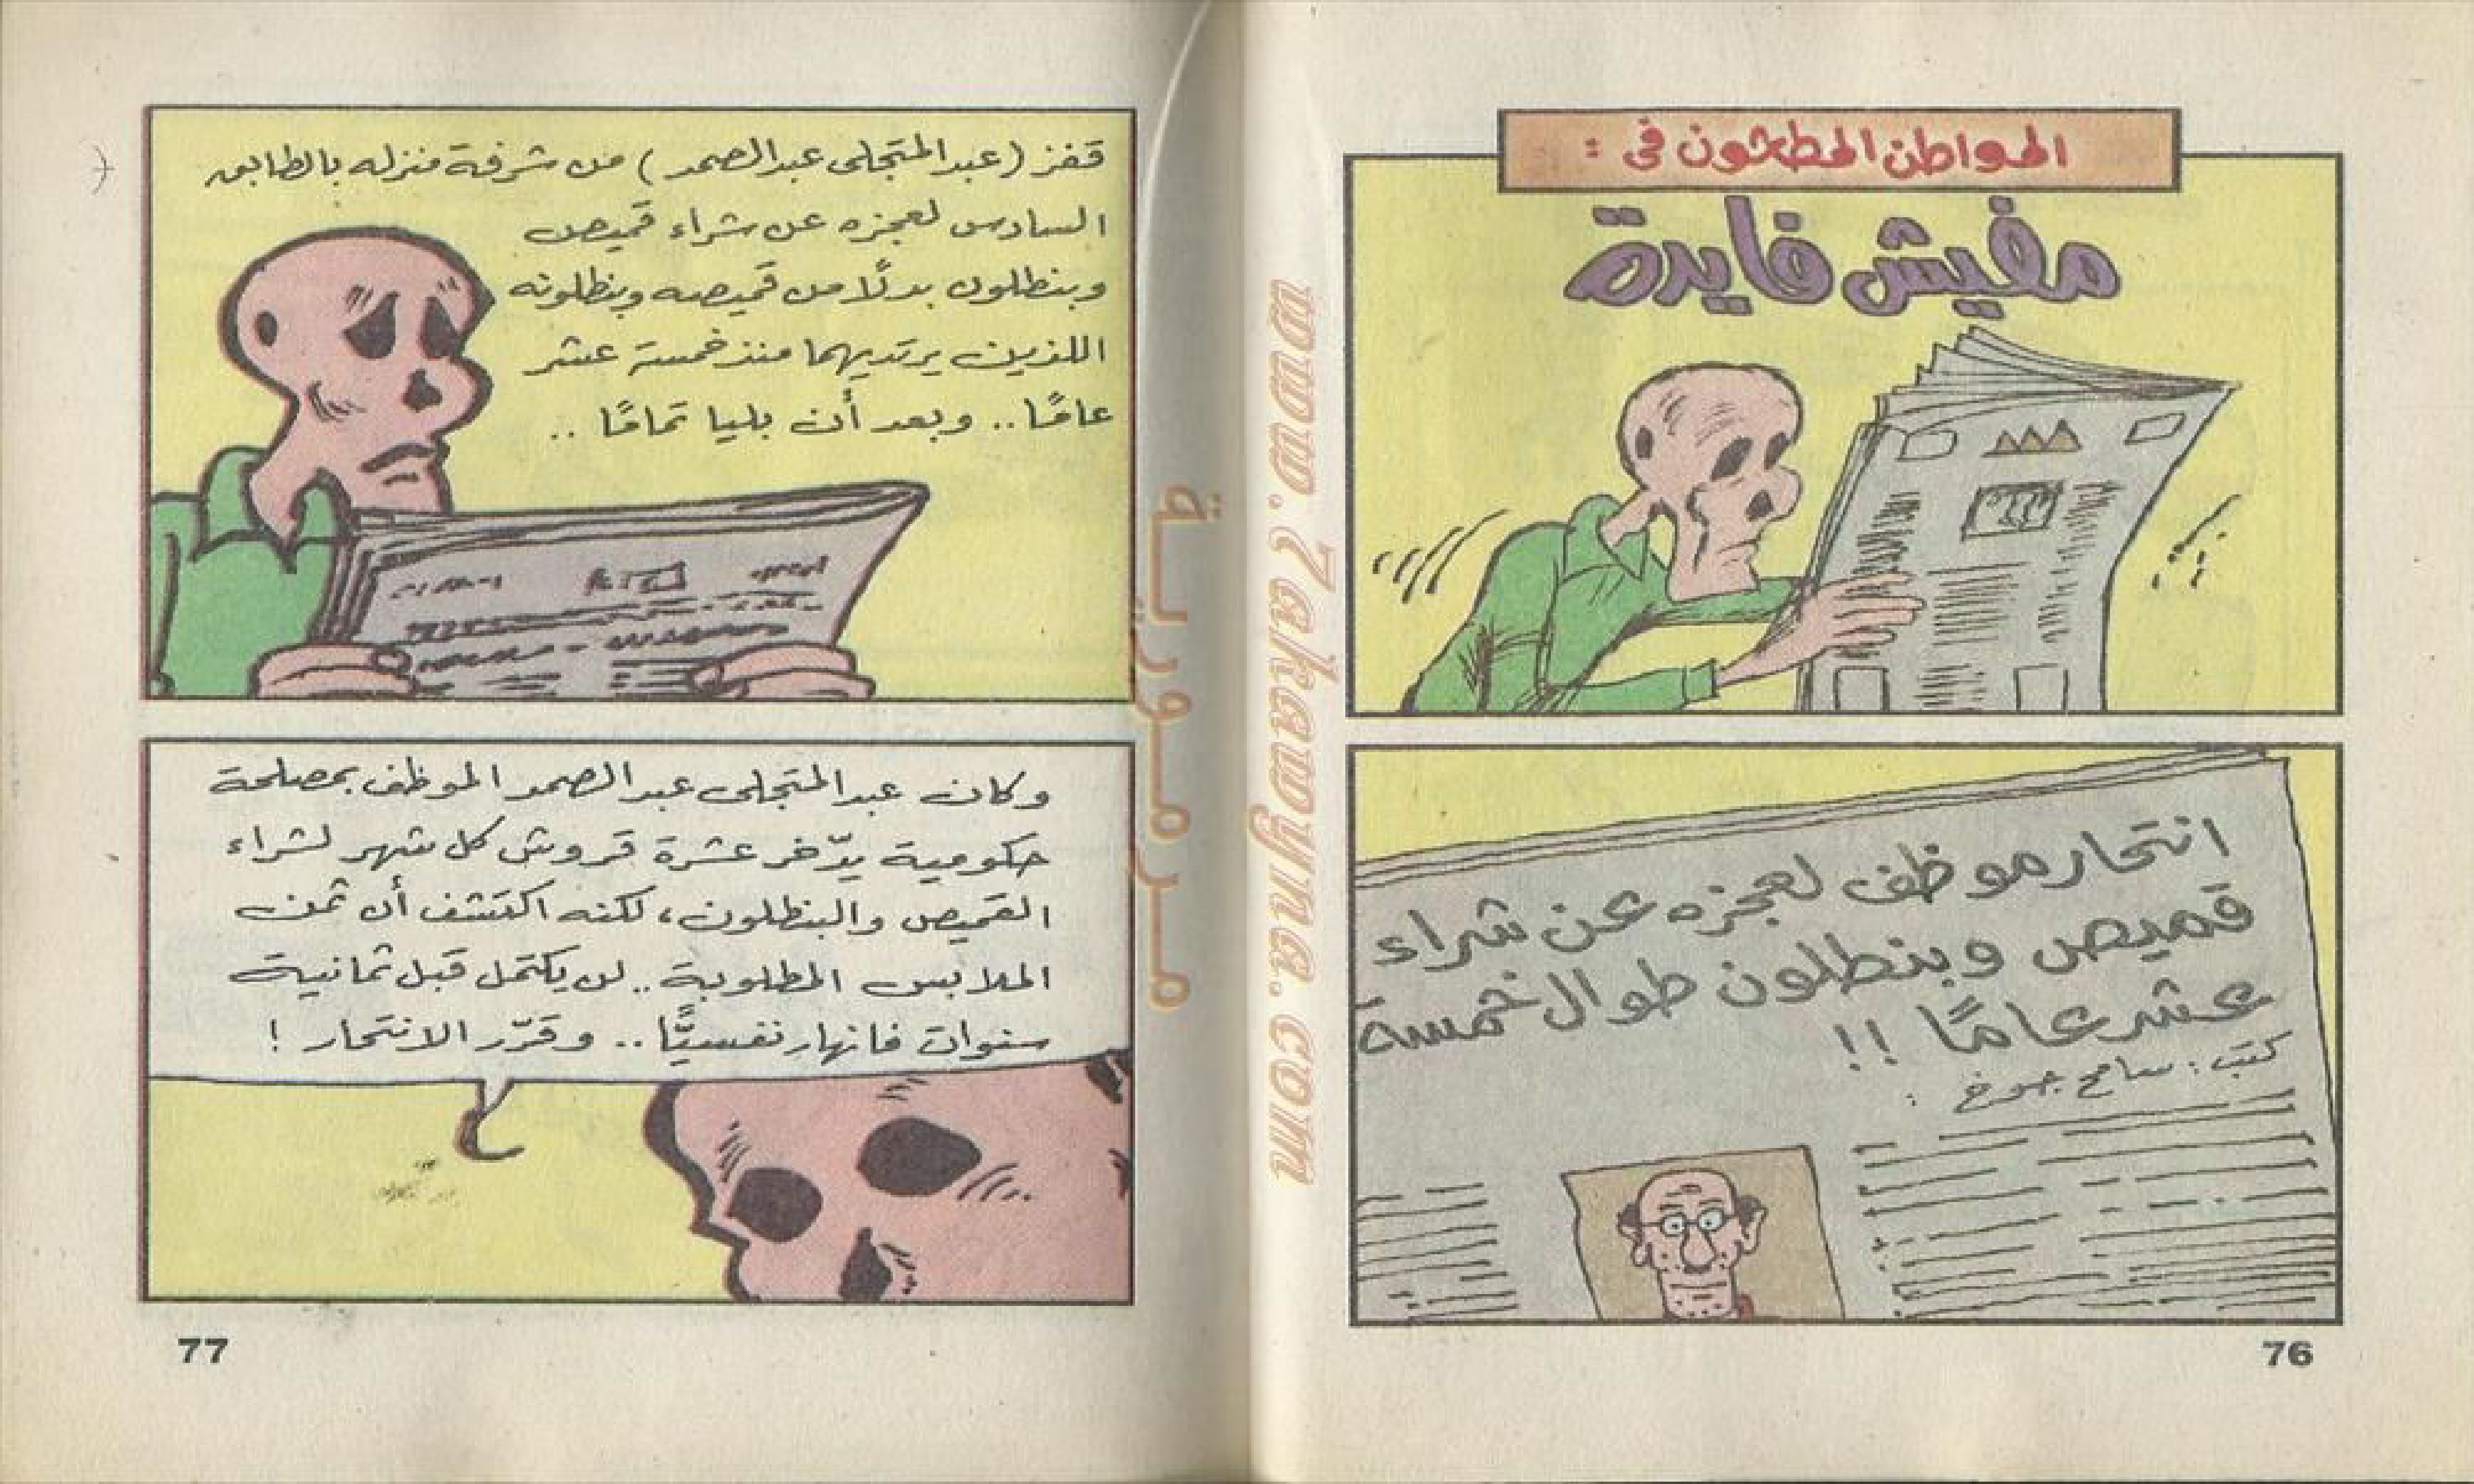 المواطن المطحون في :
مفيش فايدة
انتحار موظف لعجزه عن شراء
قميص وبنطلون طوال خمسة
عشر عامًا !!
كتب : سامح جوخ :
76
قفز (عبد المتجلى عبد الصمد) من شرفة منزله بالطابق
السادس لعجزه عن شراء قميص
وبنطلون بدلًا من قميصه وبنطلونه
اللذين يرتديهما منذ خمسة عشر
عامًا .. وبعد أن بليا تمامًا ..
وكان عبد المتجلى عبد الصمد الموظف بمصلحة
حكومية يدّخر عشرة قروش كل شهر لشراء
القميص والبنطلون، لكنه اكتشف أن ثمن
الملابس المطلوبة .. لن يكتمل قبل ثمانية
سنوات فانهار نفسيًّا .. وقرّر الانتحار !
77
مرمورية
www.7akawyna.com